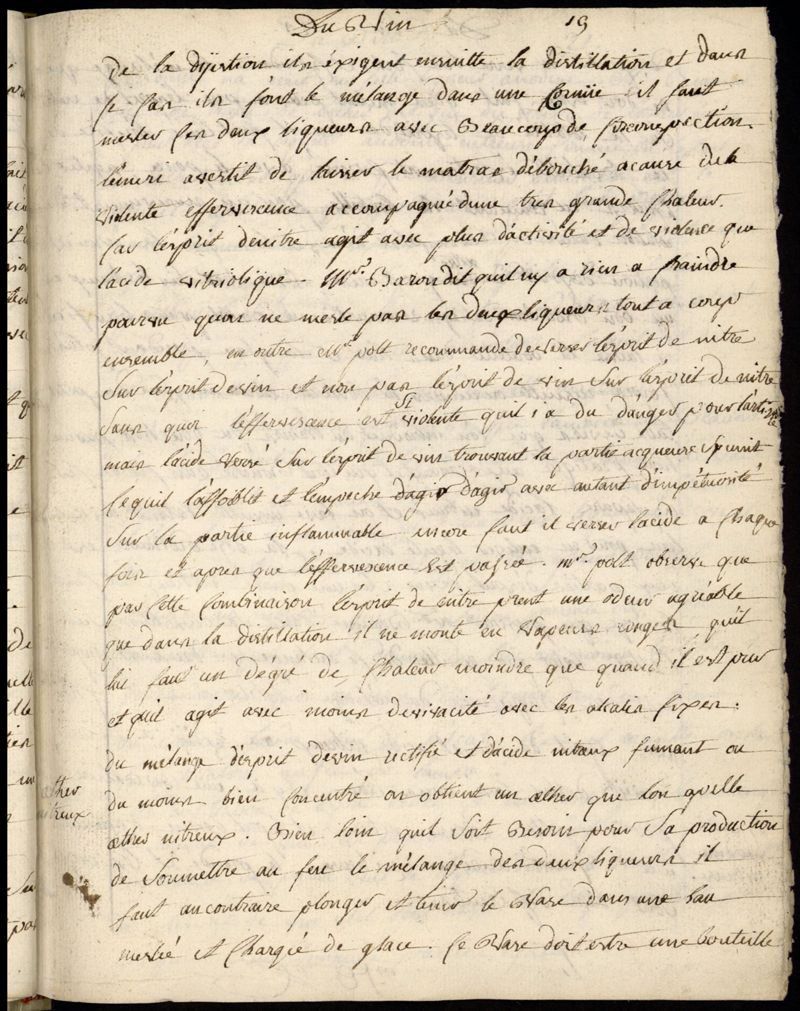 Du Vin 19
de la dijestion ils éxigent ensuitte la distillation et dans
ce cas ils font le mélange dans une cornüe il faut
mesler ces deux liqueurs avec Beaucoup de circonspection.
lémeri avertit de laisser le matras débouché a cause de la
violente effervescence accompagnée dune tres grande chaleur.
car lésprit denitre agit avec plus dáctivité et de violence que
lácide vitriolique. Mr. Baron dit quil ny a rien a craindre
pourvu quon ne mesle pas les deux liqueurs tout a coup
ensemble, en outre Mr. pott recommande de verser lésprit de nitre
sur lésprit devin et non pas lésprit de vin sur lésprit de nitre
sans quoi léffervescence est si violente quil i a du dánger pour lártiste
mais lácide versé sur lésprit de vin trouvant la partie acqueuse s'y unit
ce quil láffoiblit et lémpeche dágir dágir avec autant dímpétuosité
sur la partie inflammable encore faut il verser lacide a chaque
fois et apres que léffervescence est passée. mr. pott observe que
par cette combinaison lésprit de nitre prent une odeur agréable
que dans la distillation il ne monte en vapeurs rouges quil
lui faut un dégré de chaleur moindre que quand il est pur
et quil agit avec moins devivacité avec les alcalis fixes.
du mélange désprit devin rectifié et dácide nitreux fumant ou
du moins bien concentré on obtient un æther que lon apelle
æther nitreux. Bien loin quil soit Besoin pour sa production
de soumettre au feu le mélange des deux liqueurs il
faut aucontraire plonger et tenir le vase dans une eau
meslée et chargée de glace. ce vase doit estre une bouteille
æther
nitreux